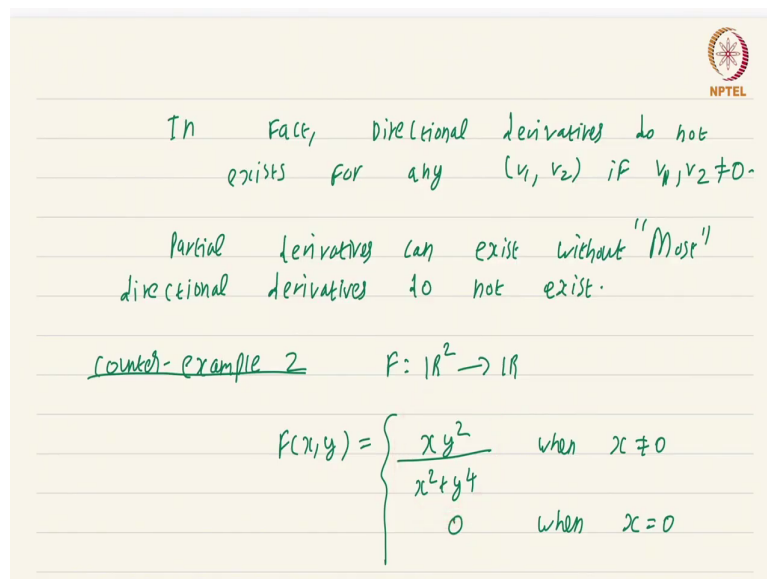 NPTEL
In Fact, Directional derivatives do not
exists for any (v1, v2) if v1, v2 ≠ 0.
Partial derivatives can exist without "Most"
directional derivatives do not exist.
Counter-example 2 F: ℝ² → ℝ
F(x,y) = { xy² / x²+y⁴ when x ≠ 0
0 when x = 0